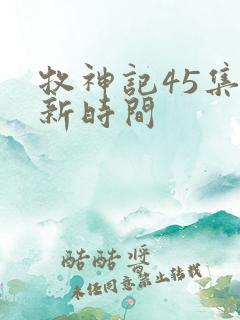 牧神記45集
新時間
酷酷醬
未经同意禁止转载